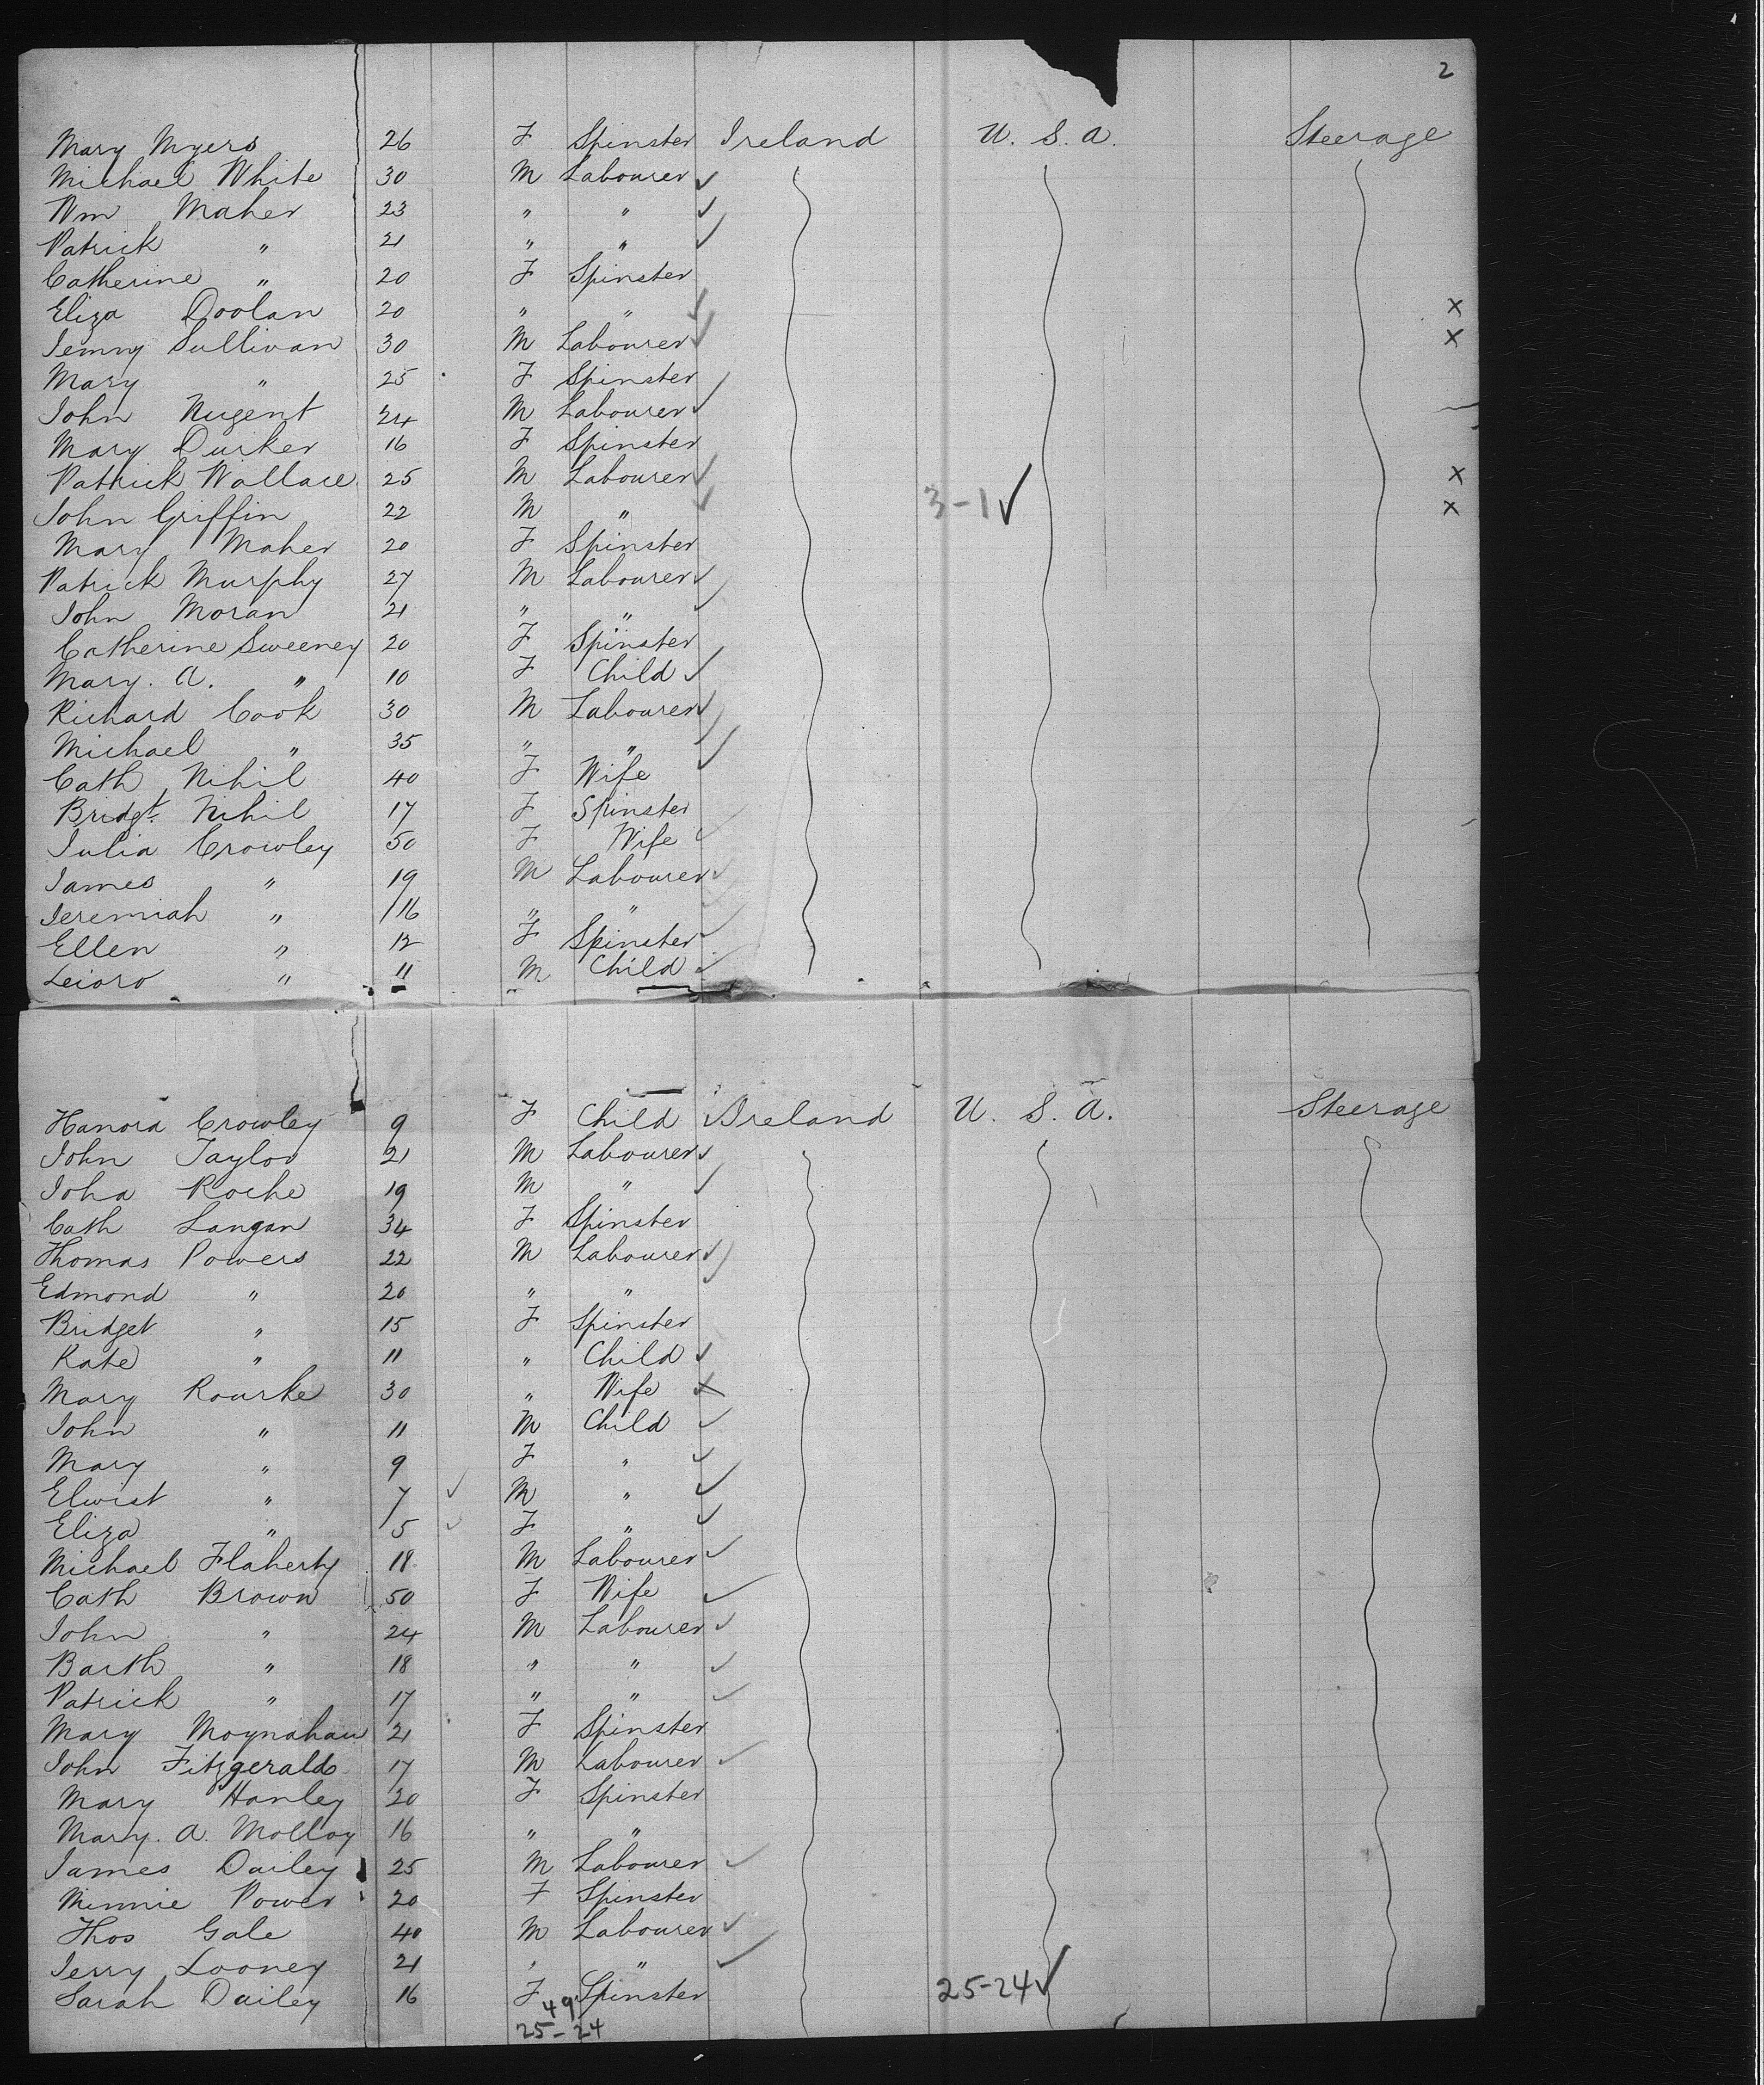 2
Mary Myers 26 F Spinster Ireland U. S. A. Steerage
Michael White 30 M Labourer ✓
Wm Maher 23 " " ✓
Patrick " 21 " " ✓
Catherine " 20 F Spinster
Eliza Doolan 20 " " ✓ x
Jemmy Sullivan 30 M Labourer ✓ x
Mary " 25 F Spinster
John Nugent 24 M Labourer ✓
Mary Durker 16 F Spinster
Patrick Wallace 25 M Labourer ✓ x
John Griffin 22 M " ✓ 3-1 ✓ x
Mary Maher 20 F Spinster
Patrick Murphy 27 M Labourer ✓
John Moran 21 " " ✓
Catherine Sweeney 20 F Spinster
Mary. A. " 10 F Child ✓
Richard Cook 30 M Labourer ✓
Michael " 35 " " ✓
Cath Nihil 40 F Wife
Bridgt. Nihil 17 F Spinster
Julia Crowley 50 F Wife ✓
James " 19 M Labourer ✓
Jeremiah " 16 " " ✓
Ellen " 12 F Spinster ✓
" 11 M Child ✓
Hanora Crowley 9 F Child ✓ Ireland U. S. A. Steerage
John Taylor 21 M Labourer ✓
John Roche 19 M " ✓
Cath Langan 34 F Spinster
Thomas Powers 22 M Labourer ✓
Edmond " 20 " " ✓
Bridget " 15 F Spinster
Kate " 11 " Child ✓
Mary Rourke 30 " Wife x
John " 11 M Child ✓
Mary " 9 F " ✓
" 7 ✓ M " ✓
Eliza " 5 ✓ F " ✓
Michael Flaherty 18 M Labourer ✓
Cath Brown 50 F Wife ✓
John " 24 M Labourer ✓
Barth " 18 " " ✓
Patrick " 17 " " ✓
Mary Moynahan 21 F Spinster
John Fitzgerald 17 M Labourer ✓
Mary Hanley 20 F Spinster
Mary. A. Molloy 16 " "
James Dailey 25 M Labourer ✓
Minnie Power 20 F Spinster
Thos Gale 40 M Labourer ✓
Jerry Looney 21 " " ✓
Sarah Dailey 16 F Spinster 25-24 ✓
49
25-24